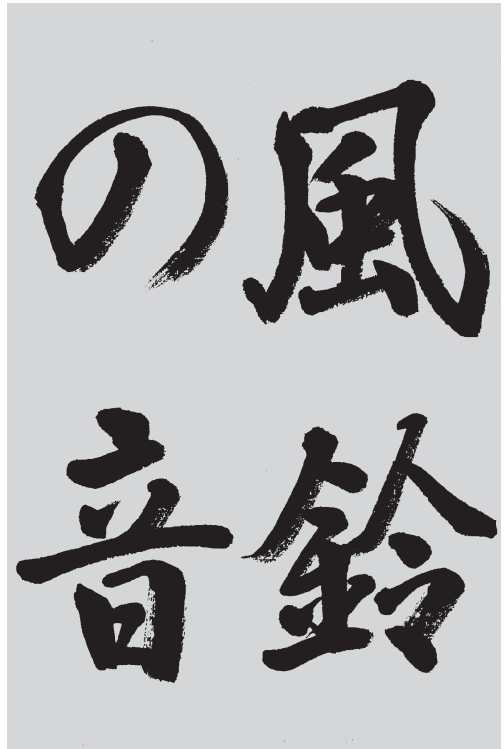 風鈴
の音